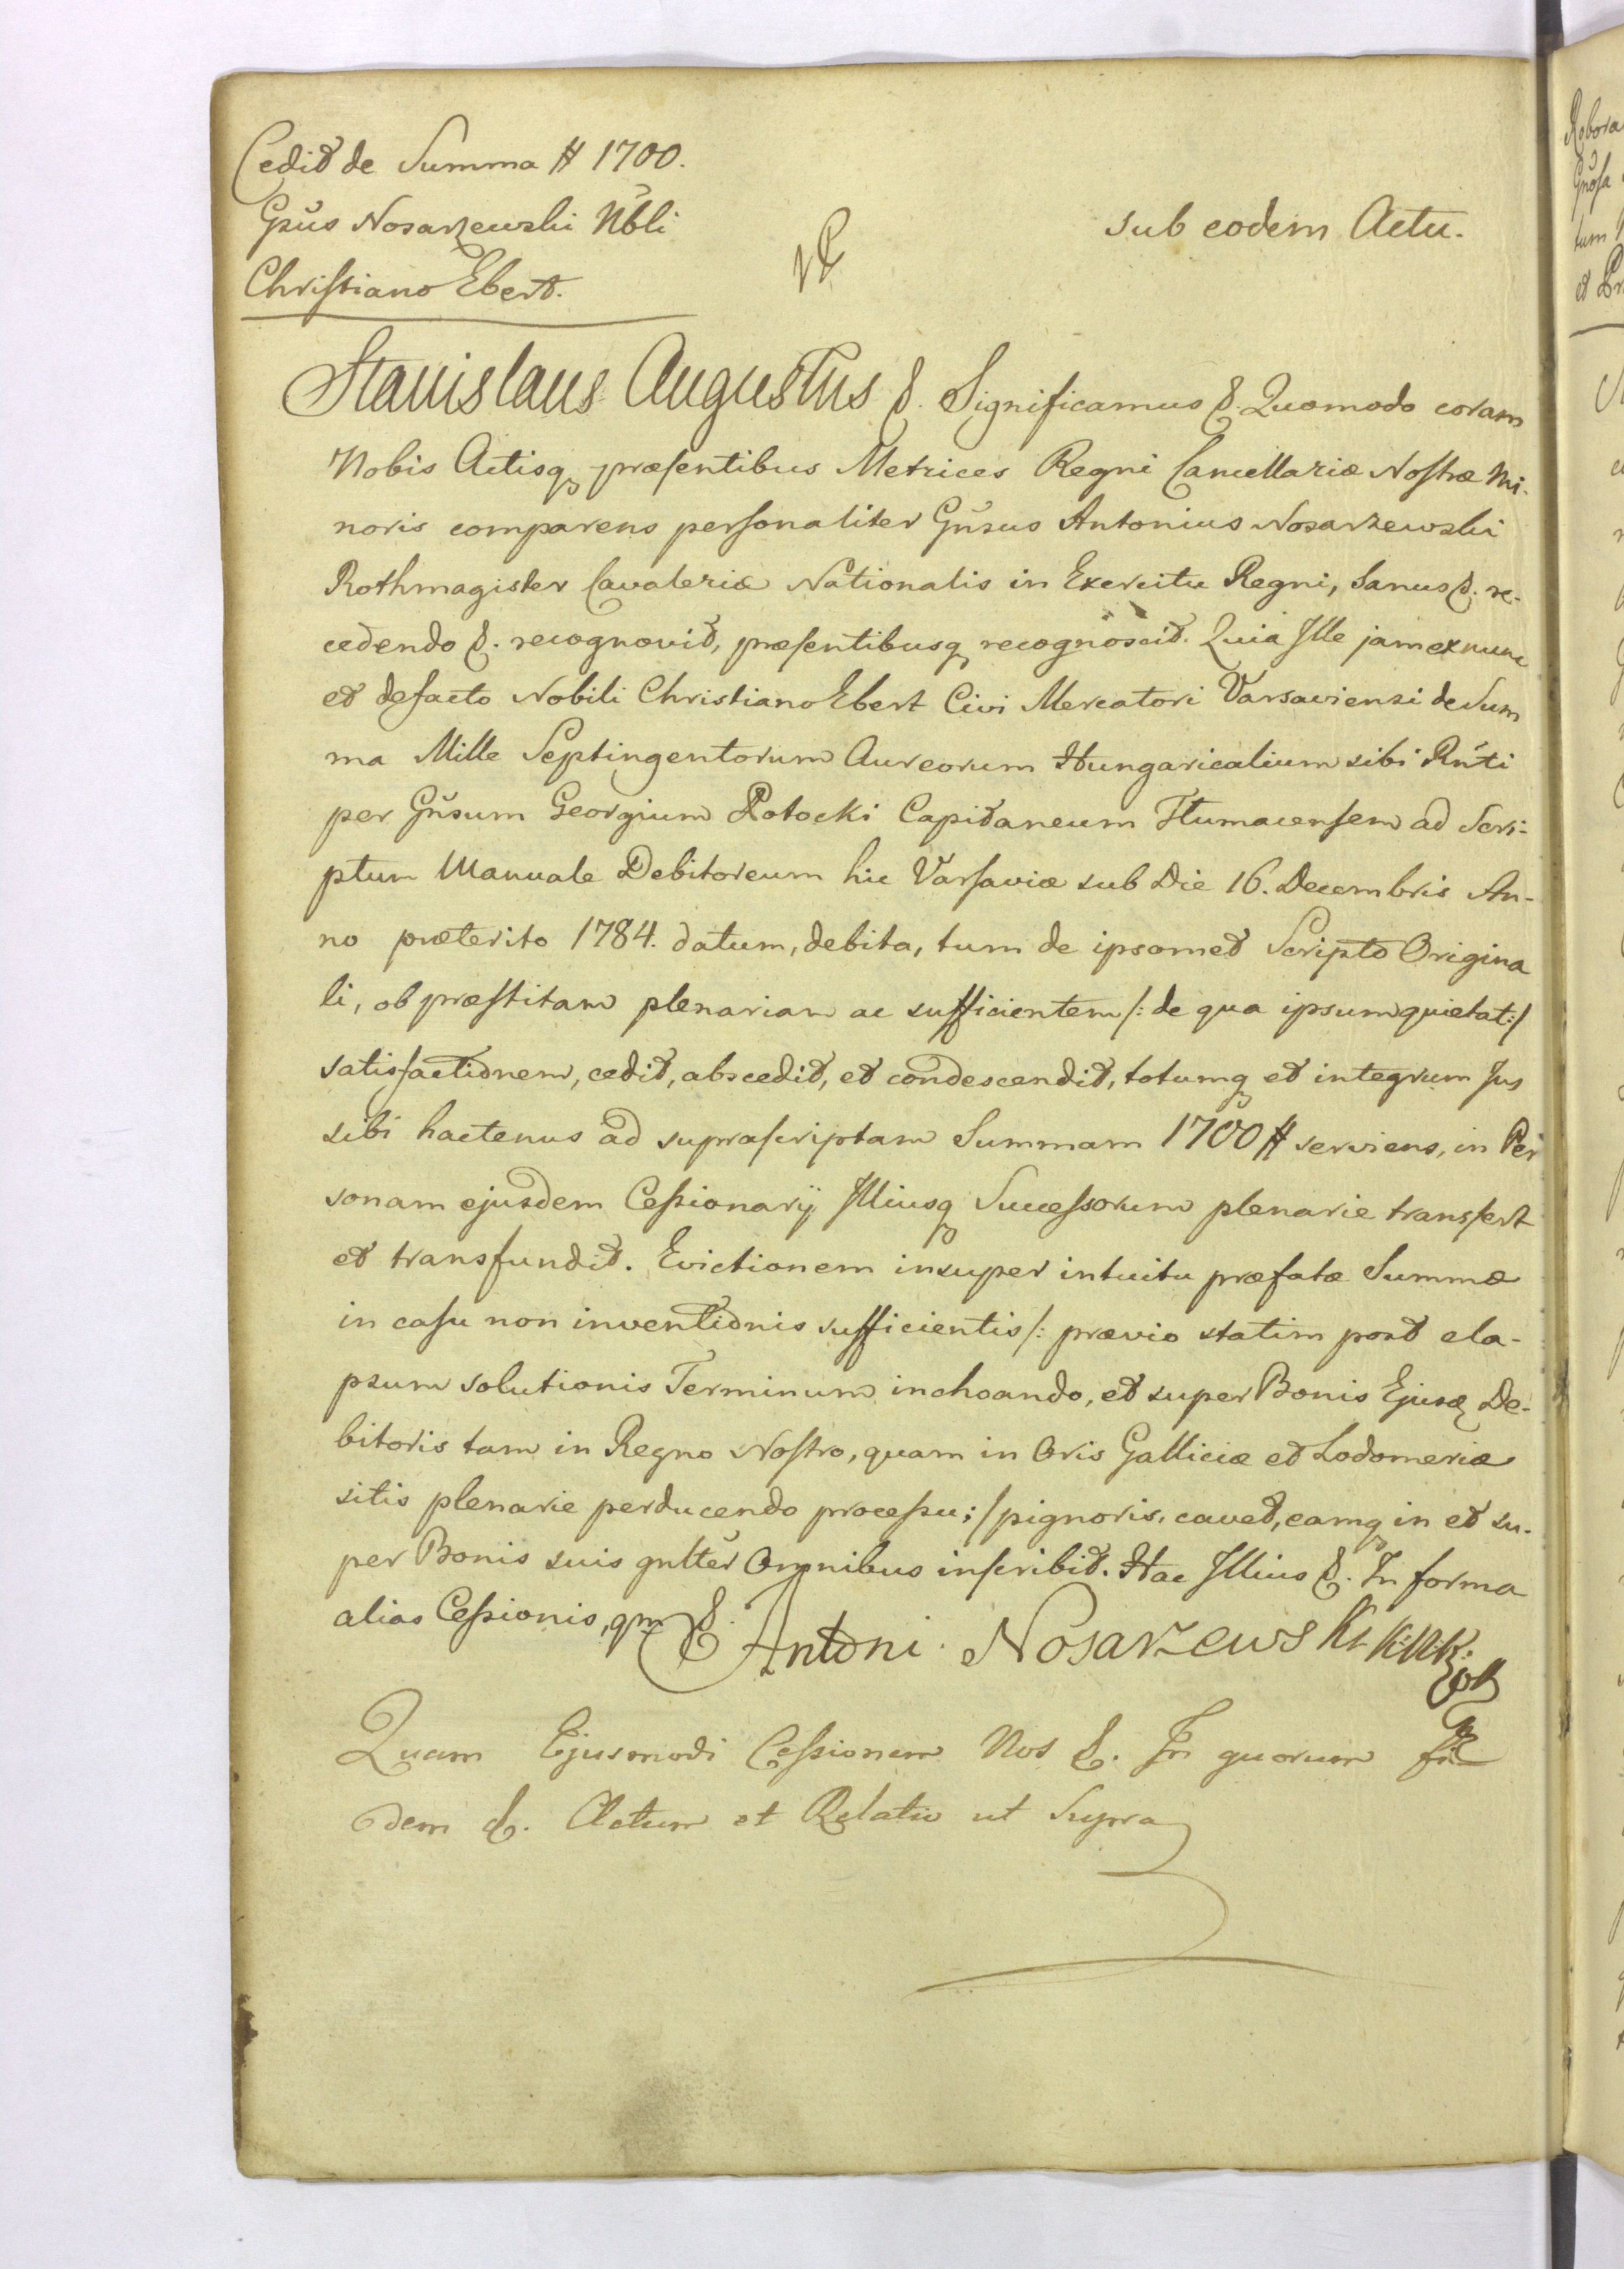 Cedit de Summa # 1700.
Gsus Nosarzewski Nbli
Christiano Ebert.
sub eodem Actu.
Stanislaus Augustus &. Significamus &. Quomodo coram
Nobis Actisq præsentibus Metrices Regni Cancellariæ Nostræ Mi-
noris comparens personaliter Gnsus Antonius Nosarzewski
Rothmagister Cavaleriæ Nationalis in Exercitu Regni, Sanus &. re-
cedendo &. recognovit, præsentibusq recognoscit. Quia Ille jam ex nunc
et defacto Nobili Christiano Ebert Civi Mercatori Varsaviensi de Sum
ma Mille Septingentorum Aureorum Hungaricalium sibi Rnti
per Gnsum Georgium Potocki Capitaneum Tlumacensem ad Scri-
ptum Manuale Debitoreum hic Varsaviæ sub Die 16. Decembris An-
no præterito 1784. datum, debita, tum de ipsomet Scripto Origina
li, ob præstitam plenariam ac sufficientem /: de qua ipsum quietat :/
satisfactionem, cedit, abscedit, et condescendit, totumq et integrum Jus
sibi hactenus ad suprascriptam Summam 1700 # serviens, in Per
sonam ejusdem Cessionarij Illiusq Successorum plenarie transfert
et transfundit. Evictionem insuper intuitu præfatæ Summæ
in casu non inventionis sufficientis /: prævio statim post ela-
psum solutionis Terminum inchoando, et super Bonis Ejusd De-
bitoris tam in Regno Nostro, quam in Oris Galliciæ et Lodomeriæ
sitis plenarie perducendo processu; / pignoris, cavet, eamq in et su-
per Bonis suis gnlter Omnibus inscribit. Hac Illius &. In forma
alias Cessionis, qm &.
Antoni Nosarzewski
Quam Ejusmodi Cessionem Nos &. In quorum fi
dem &. Actum et Relatio ut Supra